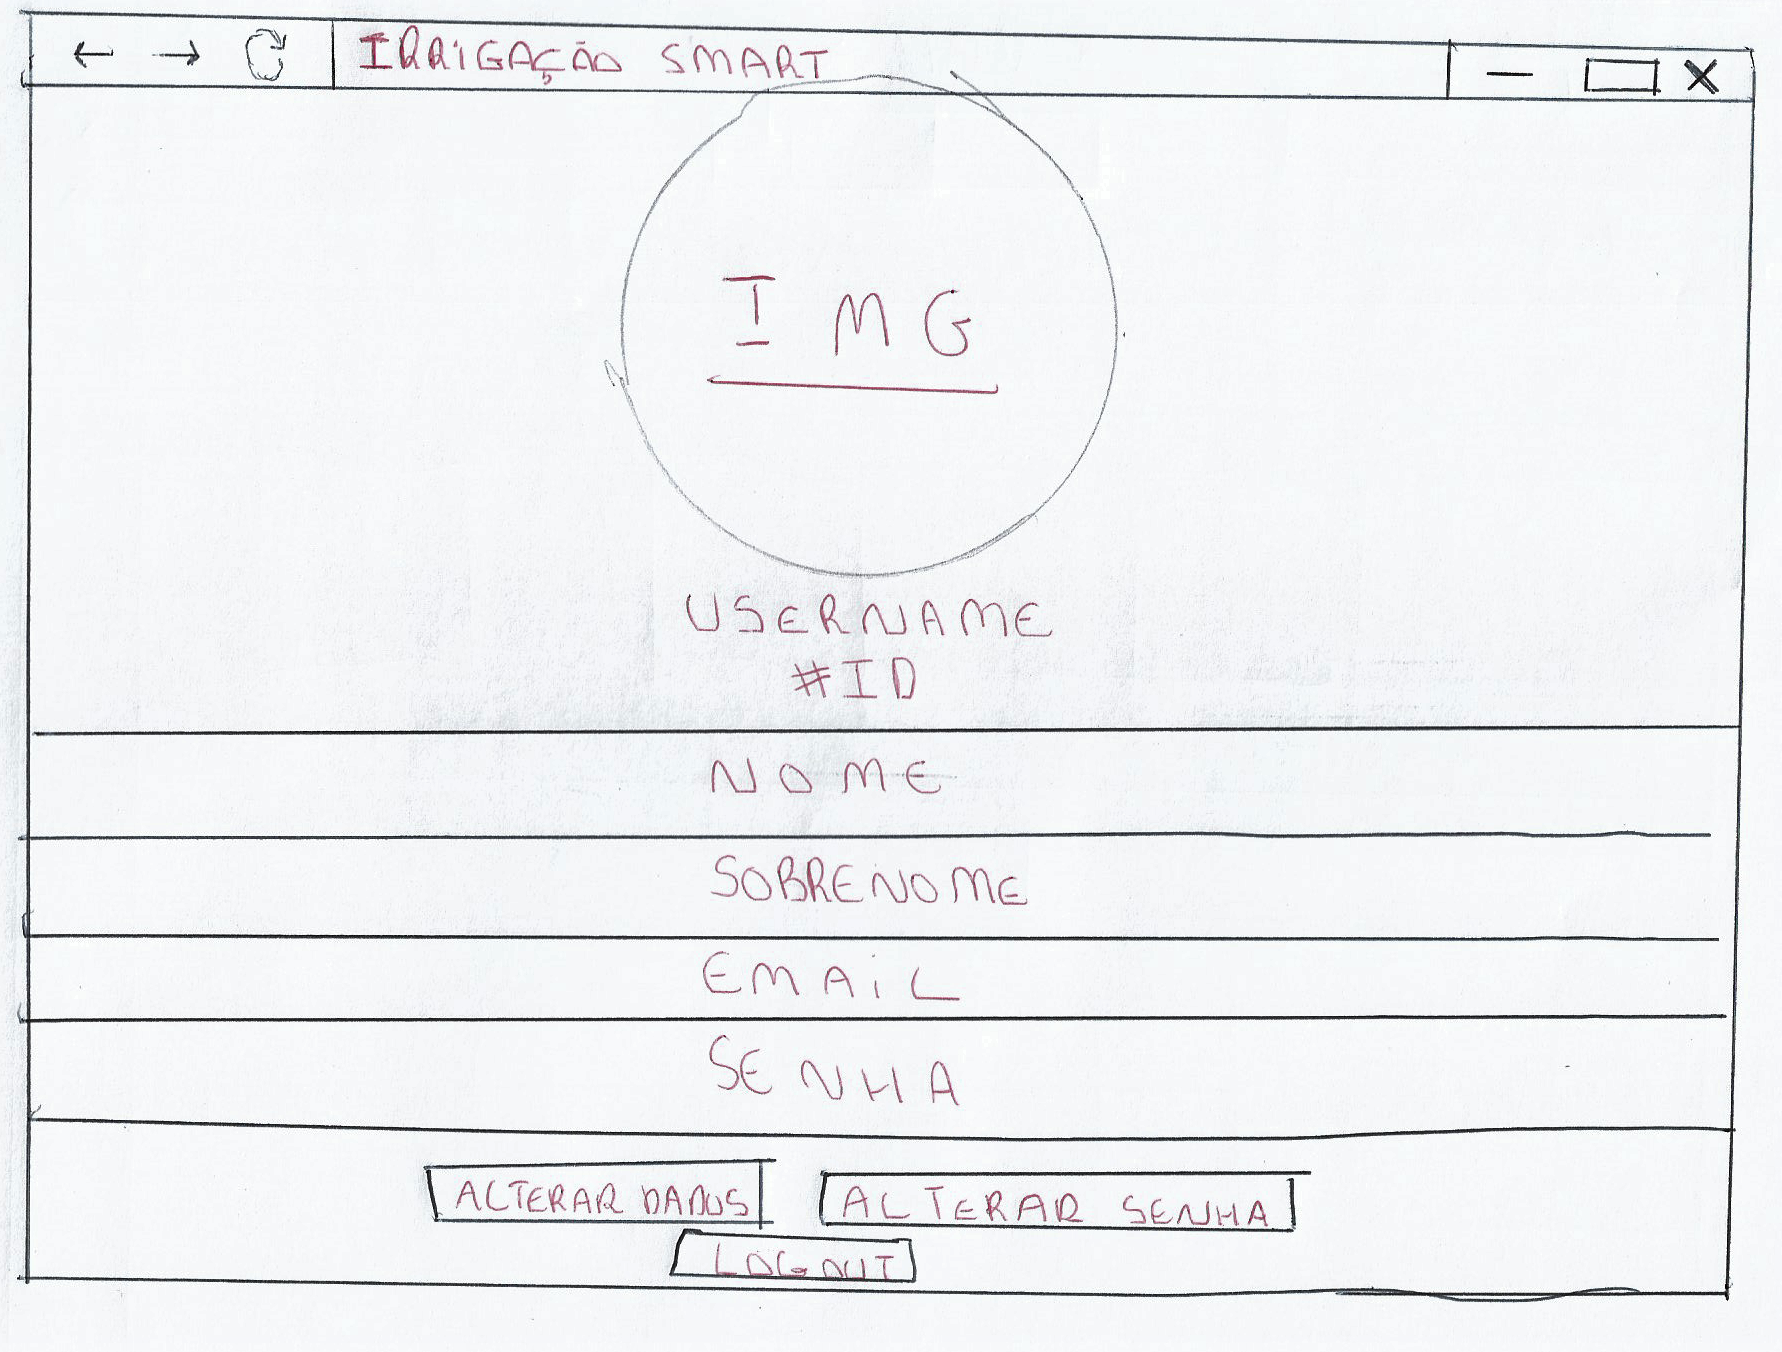 IRRIGAÇÃO SMART
IMG
USERNAME
#ID
NOME
SOBRENOME
EMAIL
SENHA
ALTERAR DADOS ALTERAR SENHA
LOGOUT